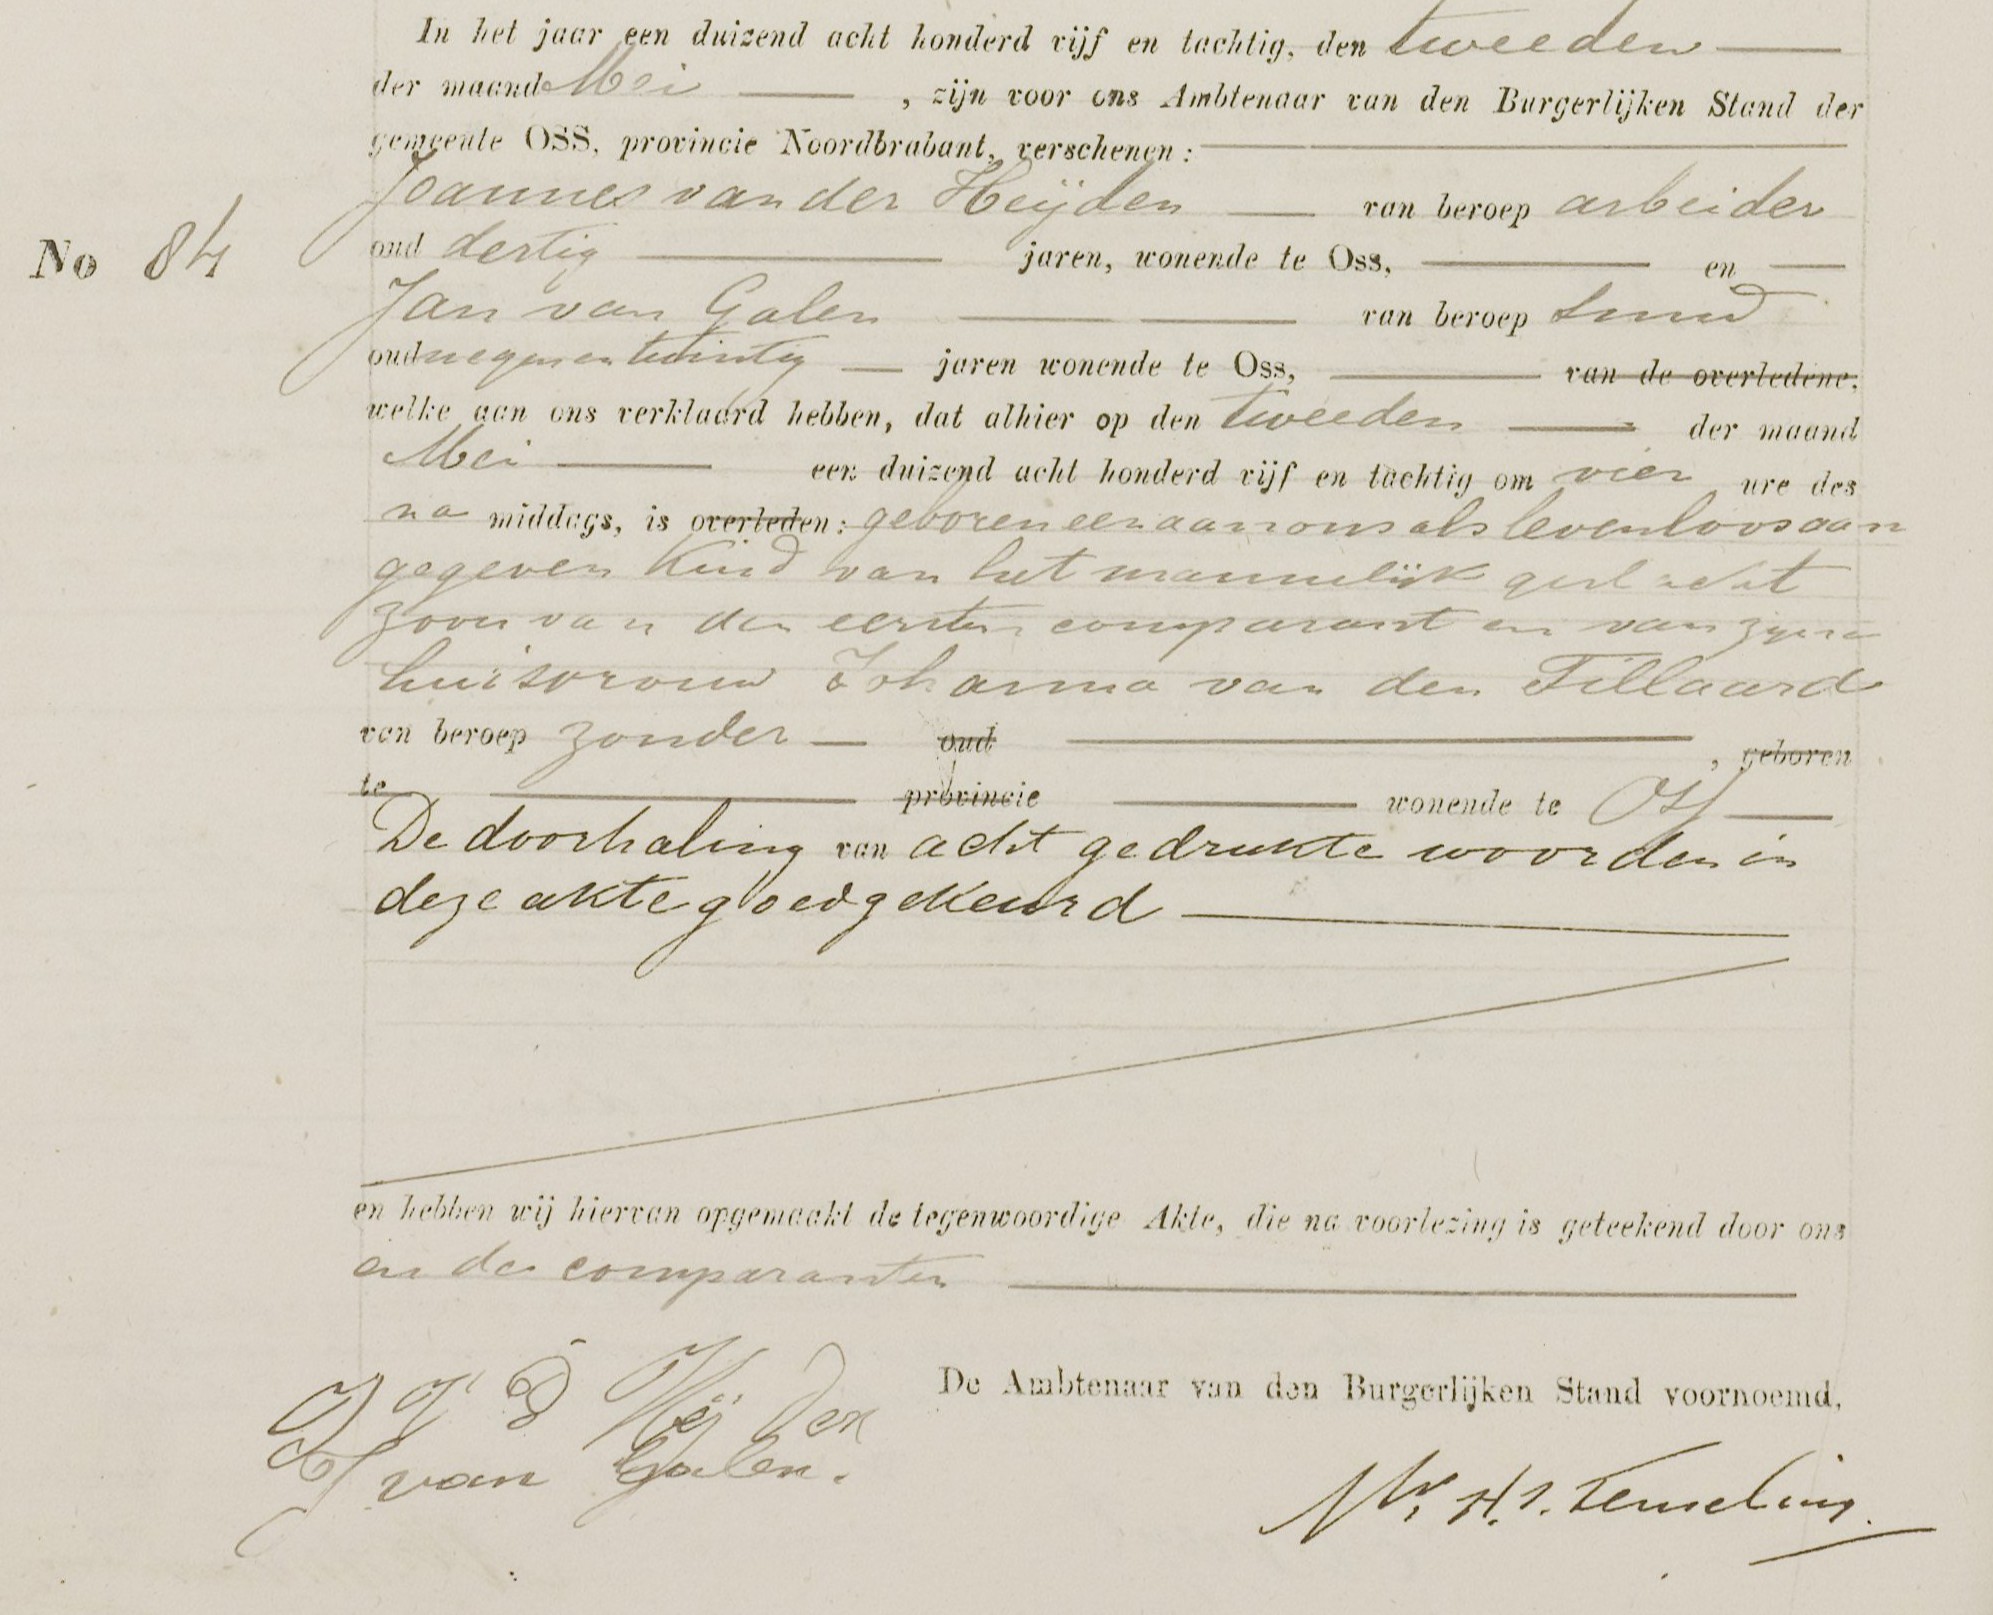 In het jaar een duizend acht honderd vijf en tachtig, den tweeden
der maand Mei , zijn voor ons Ambtenaar van den Burgerlijken Stand der
gemeente OSS, provincie Noordbrabant, verschenen:
Joannes van der Heijden van beroep arbeider
No 84
oud dertig jaren, wonende te Oss, en
Jan van Galen van beroep smid
oud negenentwintig jaren wonende te Oss, van de overledene,
welke aan ons verklaard hebben, dat alhier op den tweeden der maand
Mei een duizend acht honderd vijf en tachtig om vier ure des
na middags, is overleden: geboren een aan ons als levenloos aan
gegeven kind van het mannelijk geslacht
zoon van den eersten comparant en van zijne
huisvrouw Johanna van den Tillaard
van beroep zonder oud , geboren
te provincie wonende te Oss
De doorhaling van acht gedrukte woorden in
deze akte goedgekeurd
en hebben wij hiervan opgemaakt de tegenwoordige Akte, die na voorlezing is geteekend door ons
en de comparanten
J V D Heijden
De Ambtenaar van den Burgerlijken Stand voornoemd,
J van Galen.
Mr. H.